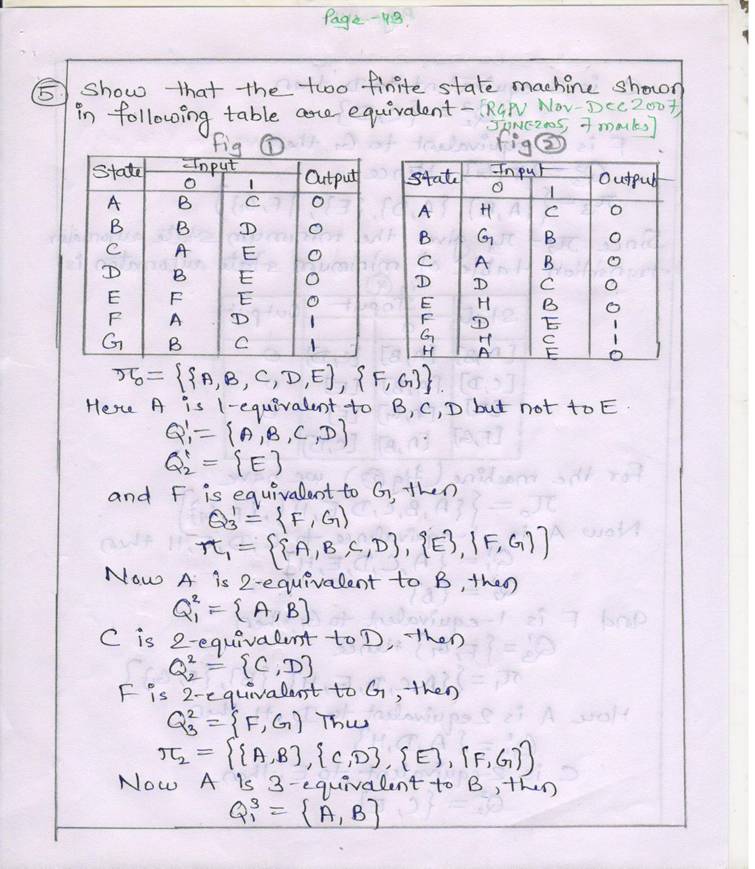 Page-43.
5 Show that the two finite state machine shown
in following table are equivalent - [RGPV Nov-Dec 2007,
JUNE2005, 7 marks]
Fig 1
State Input Output
0 1
A B C 0
B B D 0
C A E 0
D B E 0
E F E 0
F A D 1
G B C 1
Fig 2
State Input Output
0 1
A H C 0
B G B 0
C A B 0
D D C 0
E H B 0
F D E 1
G H C 1
H A E 0
π0 = {{A,B,C,D,E}, {F,G}}.
Here A is 1-equivalent to B,C,D but not to E.
Q1¹ = {A,B,C,D}
Q2¹ = {E}
and F is equivalent to G, then
Q3¹ = {F,G}
π1 = {{A,B,C,D}, {E}, {F,G}}
Now A is 2-equivalent to B, then
Q1² = {A,B}
C is 2-equivalent to D, then
Q2² = {C,D}
F is 2-equivalent to G, then
Q3² = {F,G} Thus
π2 = {{A,B}, {C,D}, {E}, {F,G}}
Now A is 3-equivalent to B, then
Q1³ = {A,B}